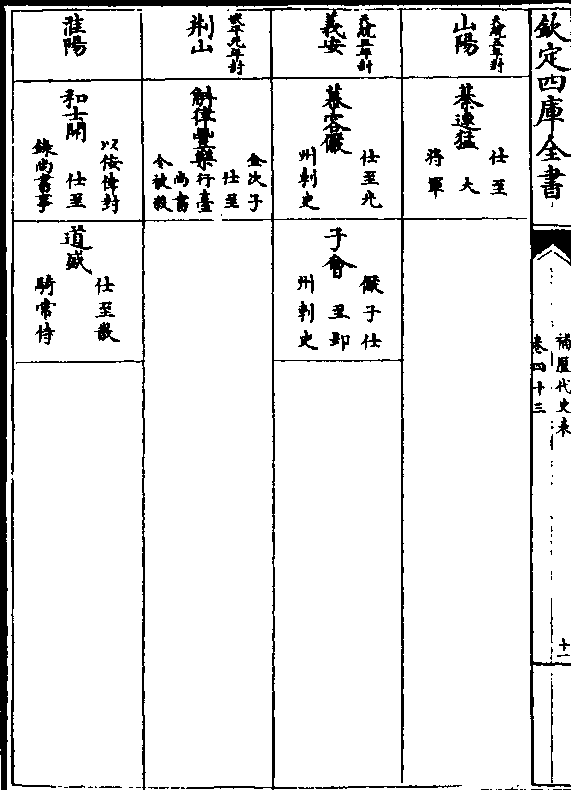 欽定四庫全書
補歷代史表
卷四十三
十一
山陽
天統五年封
綦連猛
仕至
大
將軍
義安
天統三年封
慕容儼
仕至光
州刺史
子會
儼子仕
至郢
州刺史
荆山
武平元年封
斛律豐樂
金次子
仕至
行臺
尚書
令被殺
淮陽
和士開
以佞倖封
仕至
錄尚書事
道盛
仕至散
騎常侍